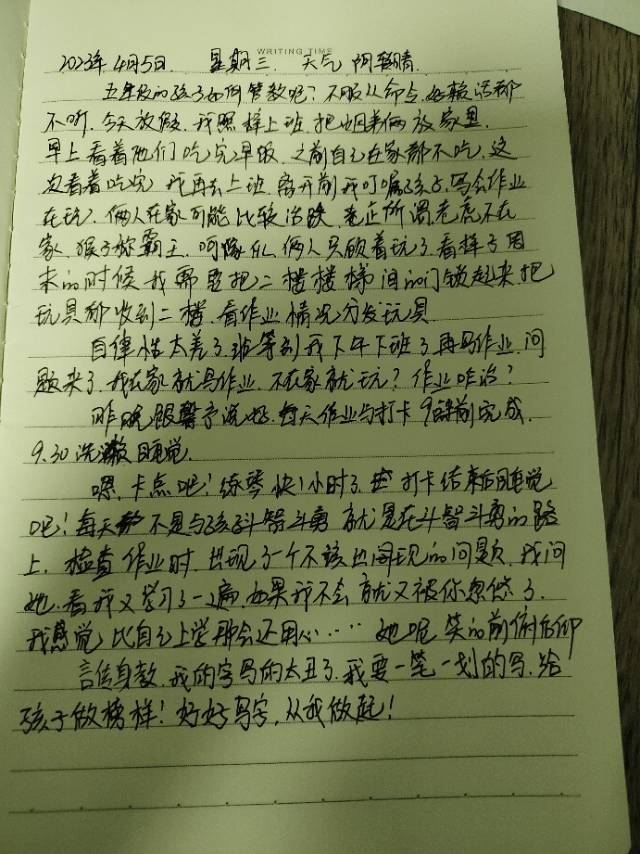 WRITING TIME
2023年4月5日. 星期三. 天气 阴转晴.
五年级的孩子如何管教呢？不服从命令.好赖话都
不听.今天放假.我照样上班.把姐弟俩放家里.
早上看着他们吃完早饭.之前自己在家都不吃.这
次看着吃完我再去上班.离开前我叮嘱孩子.写会作业
在玩.俩人在家可能比较治跌.老正所谓.老虎不在
家.猴子称霸王.呵隊仏.俩人只顾着玩了.看样子周
末的时候我需要把二楼楼梯间的门锁起来把
玩具都收到二楼.看作业情况分发玩具.
自律性太差了.非等到我下午下班了再写作业.问
题来了.我在家就写作业.不在家就玩？作业咋治？
昨晚跟馨予说好.每天作业与打卡9点前完成.
9.30洗漱睡觉.
嗯.卡点吧！练琴快1小时了.打卡结束后睡觉
吧！每天不是与孩子斗智斗勇就是在斗智斗勇的路
上.检查作业时.出现了一个不该出现的问题.我问
她.看我又学习了一遍.如果我不会就又被你忽悠了.
我感觉比自己上学那会还用心……她呢笑的前俯后仰
言传身教.我的字写的太丑了.我要一笔一划的写.给
孩子做榜样！好好写字,从我做起！